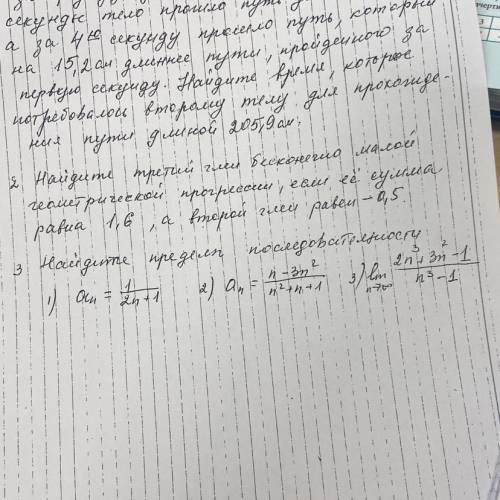 секунды тело прошло путь
а за 4ую секунду прошло путь, который
на 15,2 см длиннее пути, пройденного за
первую секунду. Найдите время, которое
потребовалось второму телу для прохожде-
ния пути длиной 205,9 см.
2 Найдите третий член бесконечно малой
геометрической прогрессии, если её сумма
равна 1,6, а второй член равен -0,5.
3 Найдите предел последовательности
1) aₙ = 1/(2n+1) 2) aₙ = (n-3n²)/(n²+n+1) 3) lim n→∞ (2n³+3n²-1)/(n³-1)